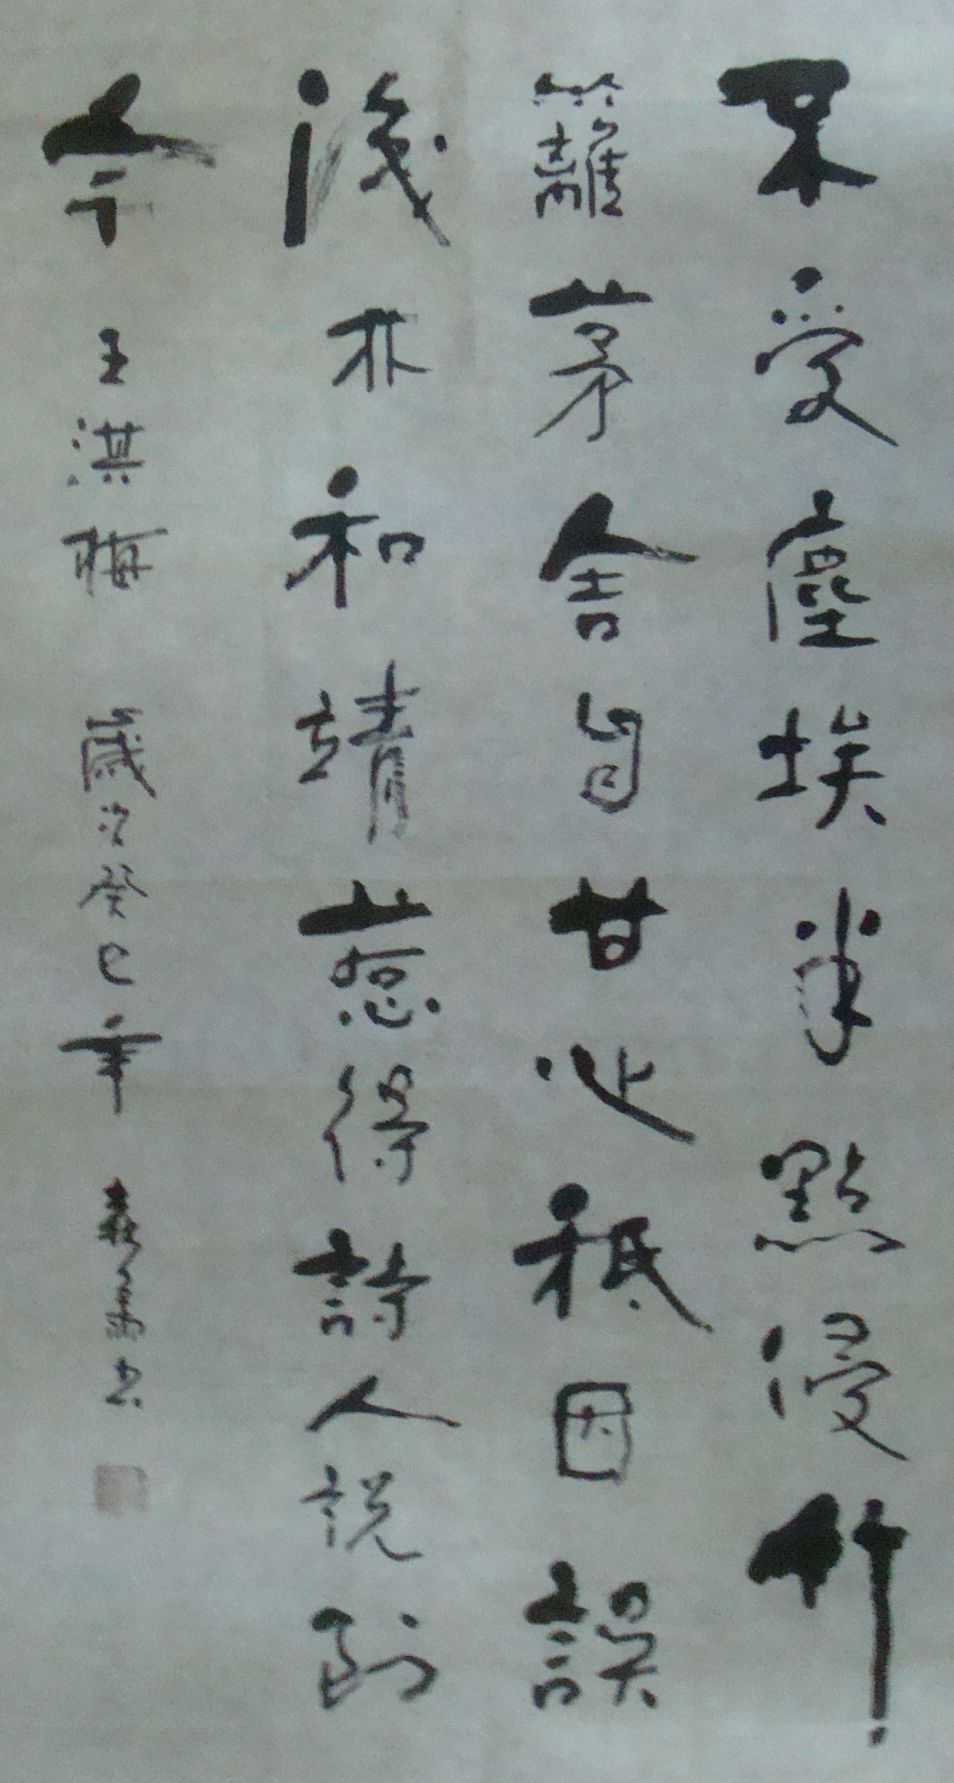 不受塵埃半點侵竹
籬茅舍自甘心秪因誤
識林和靖惹得詩人說到
今 王淇梅 歲次癸巳年 書